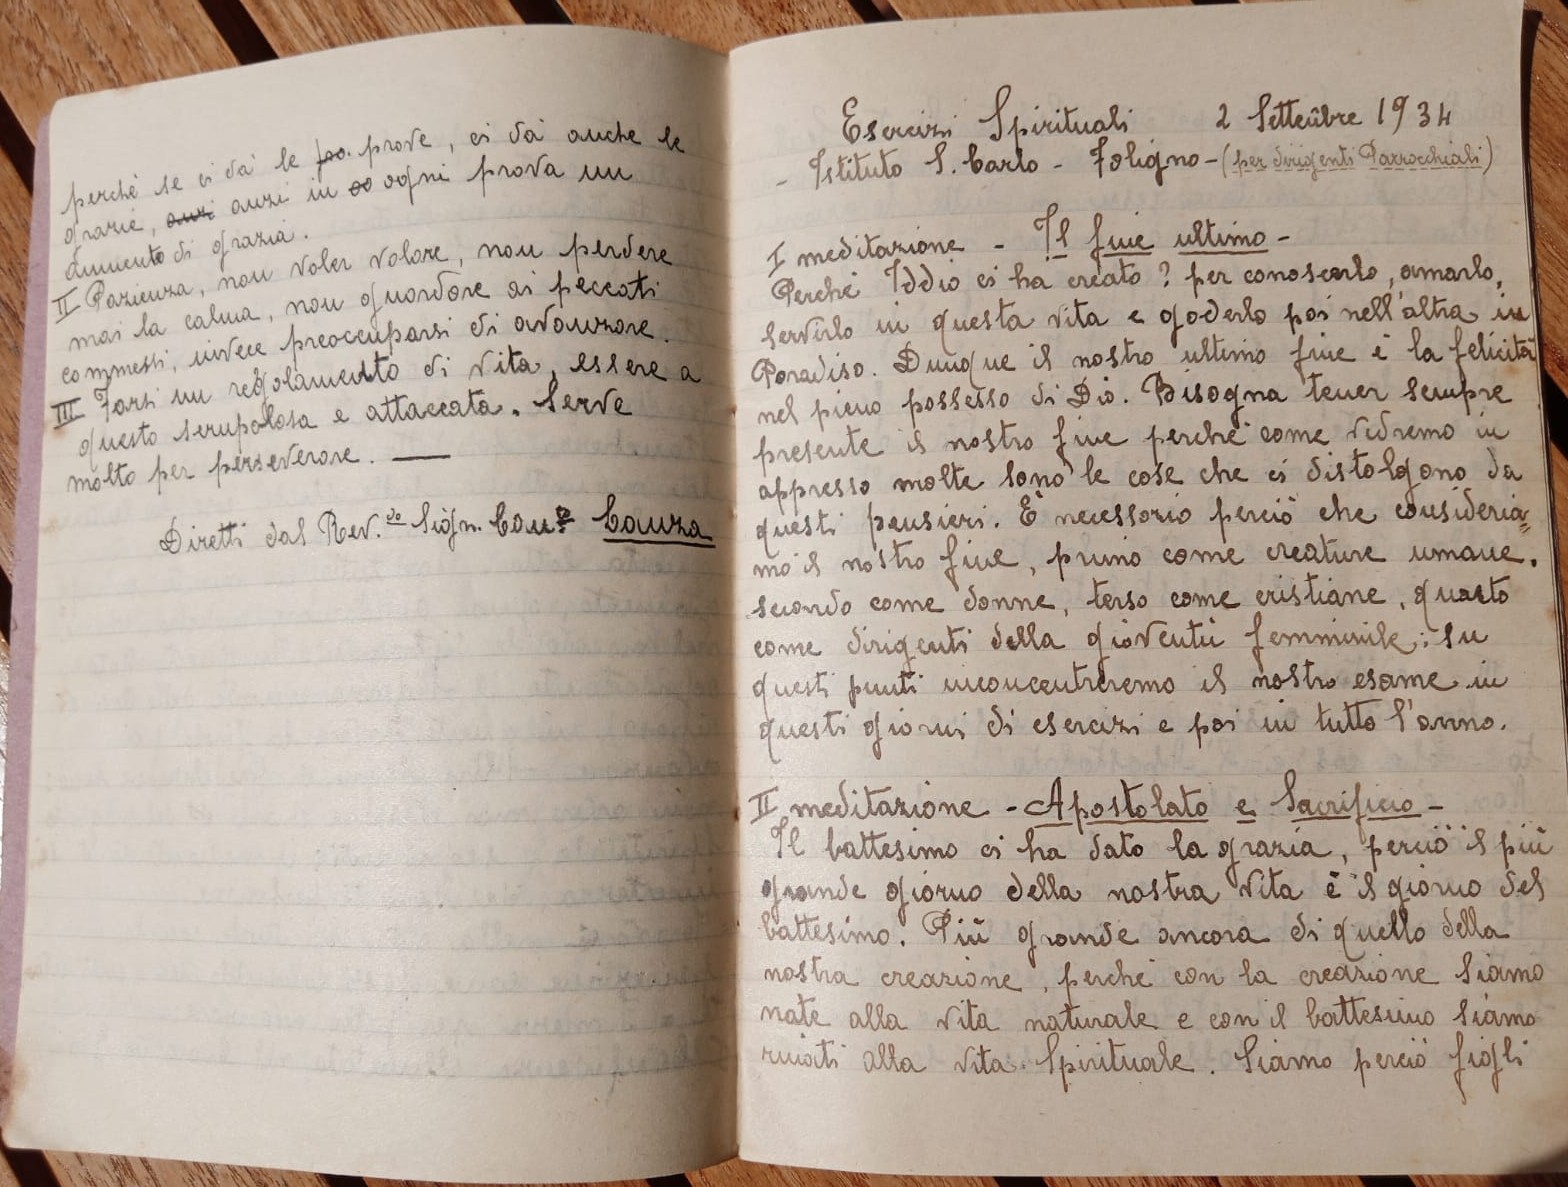 perchè se ci dà le prove, ci dà anche le
grazie, anzi anzi in ogni prova un
aumento di grazia.
II Pazienza, non voler volare, non perdere
mai la calma, non guardare ai peccati
commessi, invece preoccuparsi di avanzare.
III Farsi un regolamento di vita, essere a
questo scrupolosa e attaccata. Serve
molto per perseverare. —
Diretti dal Rev.do Sign. Can.co Canza
Esercizi Spirituali 2 Settembre 1934
- Istituto S. Carlo - Foligno - (per dirigenti Parrocchiali)
I meditazione - Il fine ultimo -
Perché Iddio ci ha creato? per conoscerlo, amarlo,
servirlo in questa vita e goderlo poi nell'altra in
Paradiso. Dunque il nostro ultimo fine è la felicità
nel pieno possesso di Dio. Bisogna tener sempre
presente il nostro fine perché come vedremo in
appresso molte sono le cose che ci distolgono da
questi pensieri. È necessario perciò che consideria=
mo il nostro fine, primo come creature umane.
secondo come donne, terso come cristiane, quarto
come dirigenti della gioventù femminile: su
questi punti inconcentreremo il nostro esame in
questi giorni di esercizi e poi in tutto l'anno.
II meditazione - Apostolato e Sacrificio -
Il battesimo ci ha dato la grazia, perciò il più
grande giorno della nostra vita è il giorno del
battesimo. Più grande ancora di quello della
nostra creazione, perché con la creazione siamo
nate alla vita naturale e con il battesimo siamo
rinati alla vita Spirituale. Siamo perciò figli